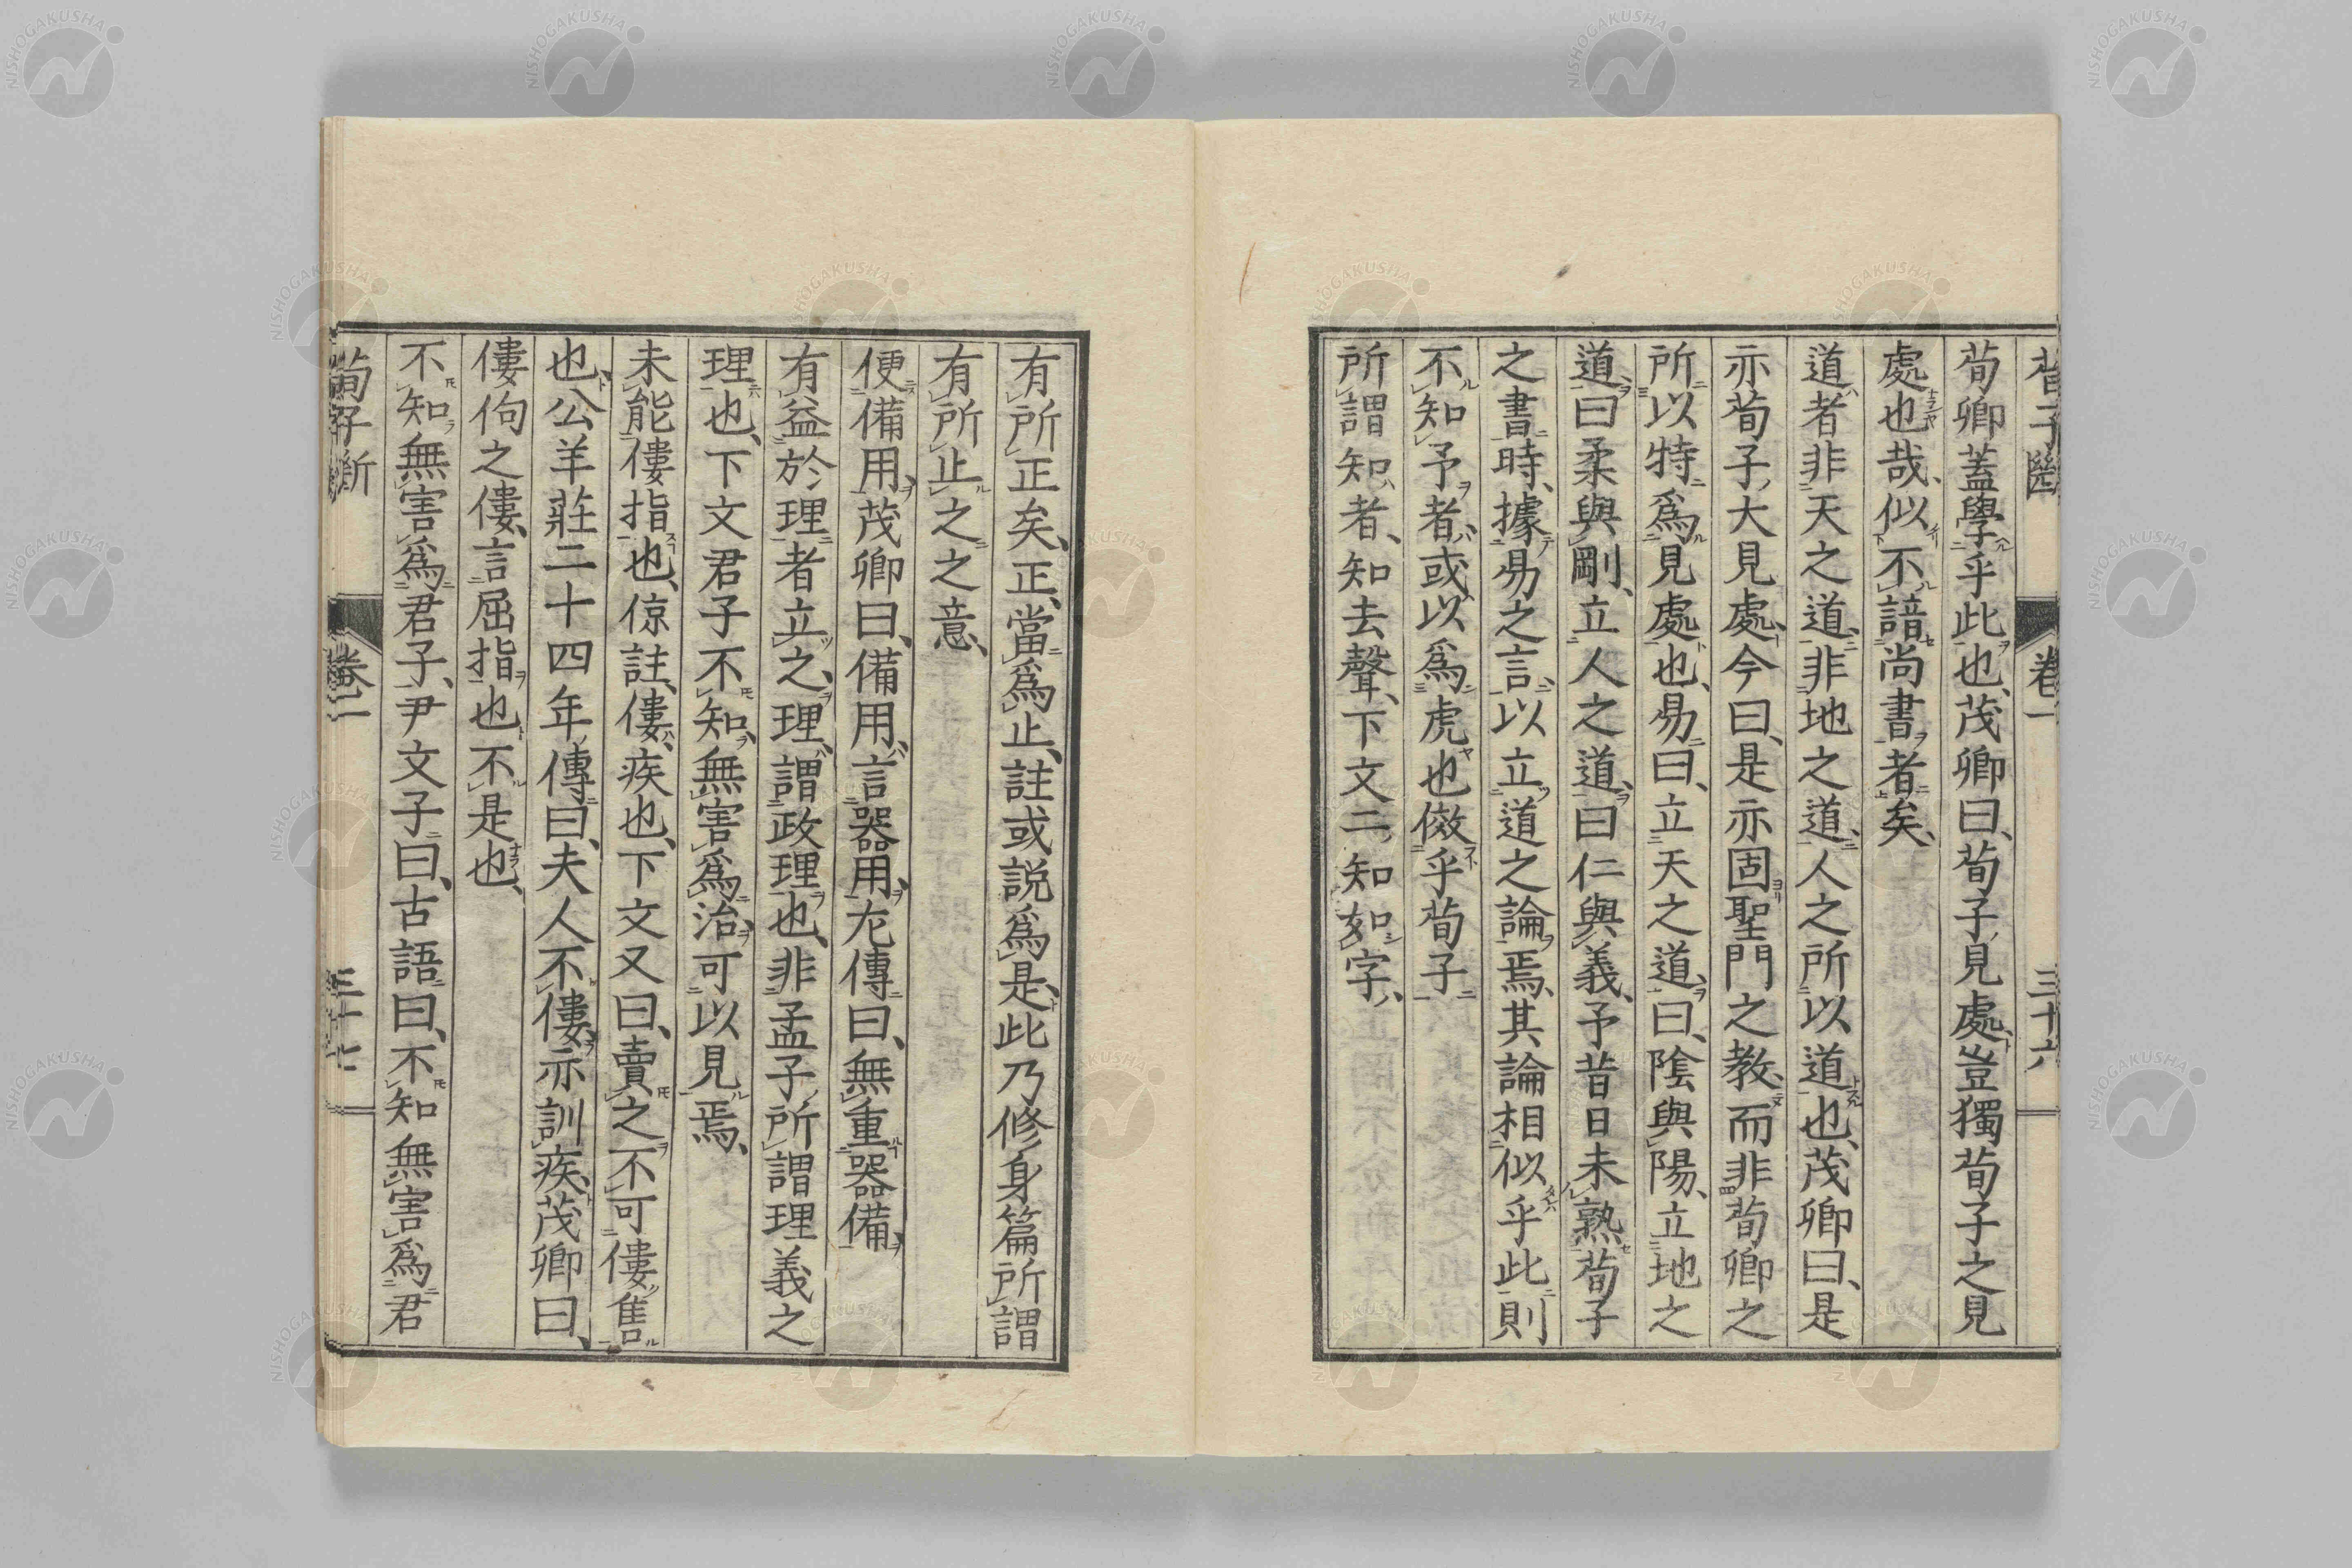 荀卿蓋學乎此也、茂卿曰、荀子見處、豈獨荀子之見
處也哉、似不諳尚書者矣、
道者非天之道、非地之道、人之所以道也、茂卿曰、是
亦荀子大見處、今曰、是亦固聖門之教、而非荀卿之
所以特爲見處也、易曰、立天之道、曰、陰與陽、立地之
道、曰柔與剛、立人之道、曰仁與義、予昔日未熟荀子
之書時、據易之言、以立道之論焉、其論相似乎此、則
不知予者、或以爲虎也傚乎荀子
所謂知者、知去聲、下文二知如字、
荀子斷 卷一 三十六
有所正矣、正、當爲止、註或説爲是、此乃修身篇所謂
有所止之之意、
便備用、茂卿曰、備用、言器用、左傳曰、無重器備、
有益於理者立之、理、謂政理也、非孟子所謂理義之
理也、下文君子不知、無害爲治、可以見焉、
未能僂指也、倞註、僂、疾也、下文又曰、賣之不可僂售
也、公羊莊二十四年傳曰、夫人不僂、亦訓疾、茂卿曰、
僂佝之僂、言屈指也、不是也、
不知無害爲君子、尹文子曰、古語曰、不知無害爲君
荀子斷 卷一 三十七
NISHOGAKUSHA